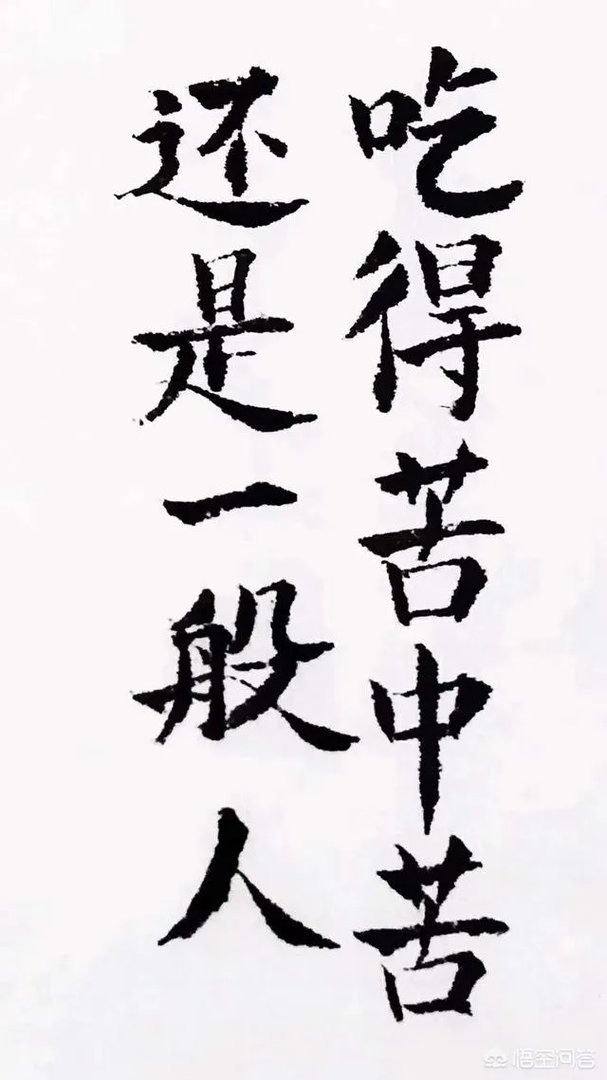 吃得苦中苦
还是一般人
悟空问答